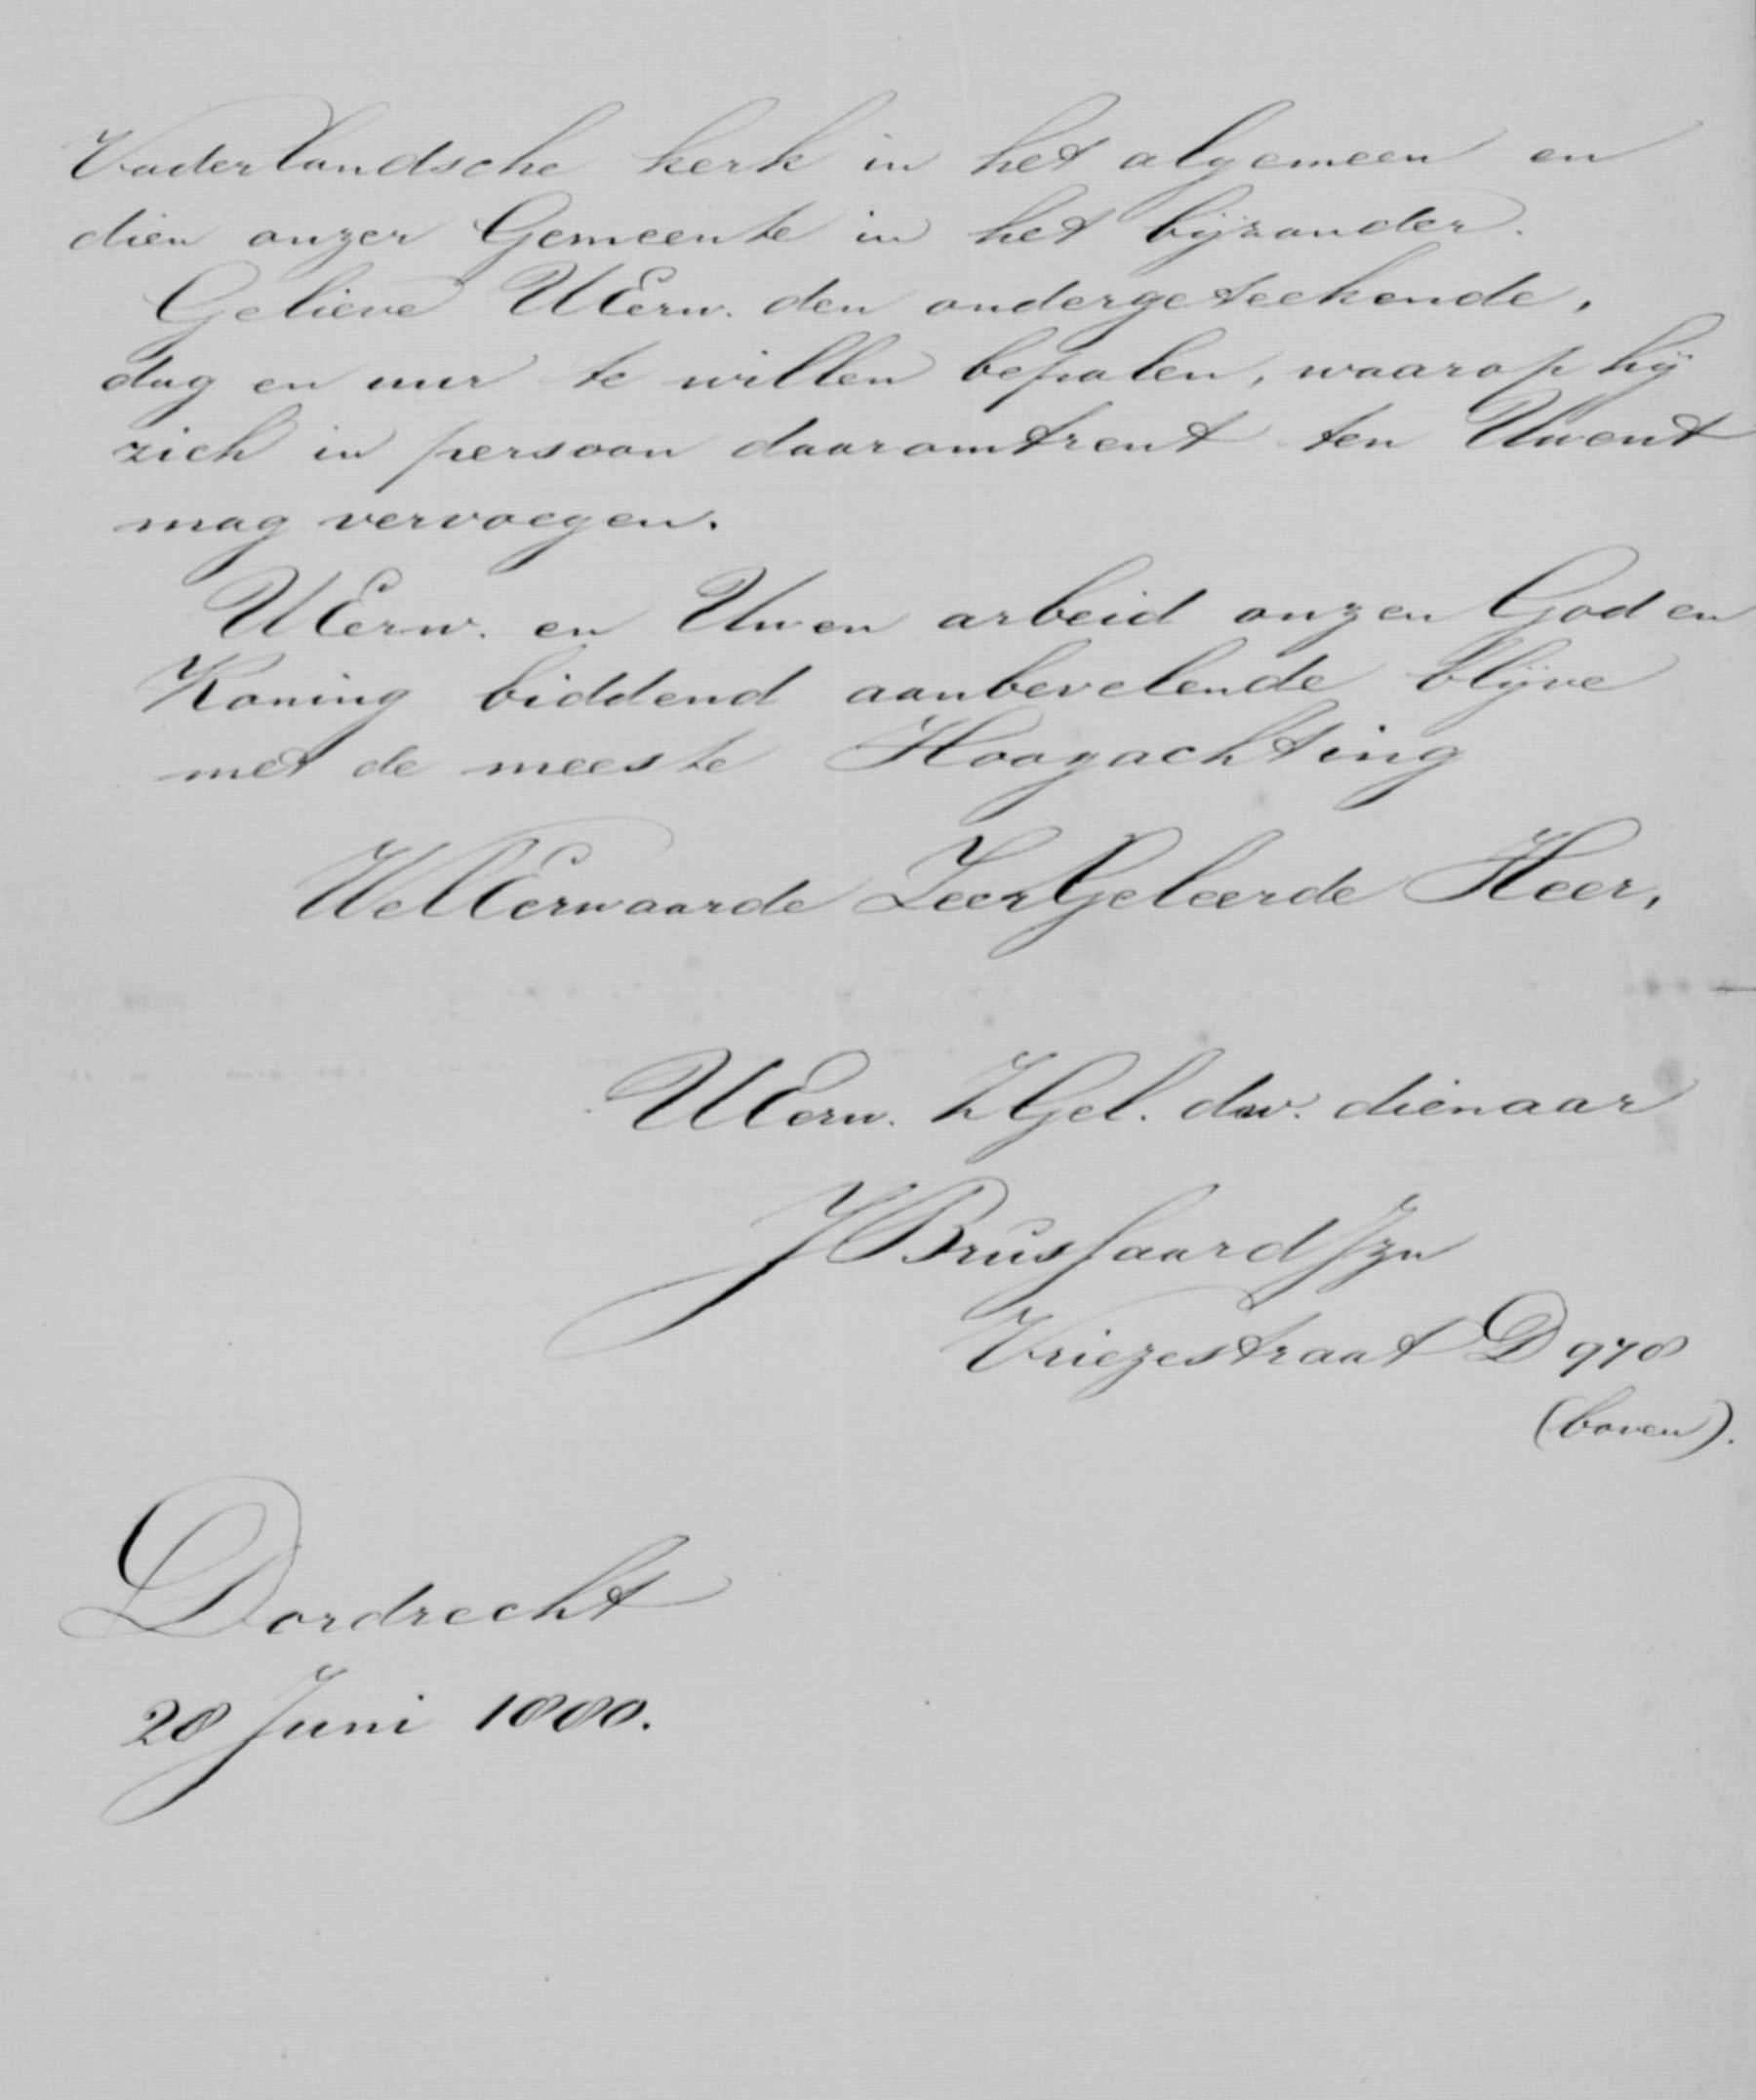 Vaderlandsche kerk in het algemeen en
dien onzer Gemeente in het bijzonder.
Gelieve UEerw. den ondergeteekende,
dag en uur te willen bepalen, waarop hij
zich in persoon daaromtrent ten Uwent
mag vervoegen.
UEerw. en Uwen arbeid onzen God en
Koning biddend aanbevelende blijve
met de meeste Hoogachting
WelEerwaarde ZeerGeleerde Heer,
UEerw. ZGel. dw. dienaar
J Brussaard Jzn
Vriezestraat D 978
(boven).
Dordrecht
28 Juni 1880.